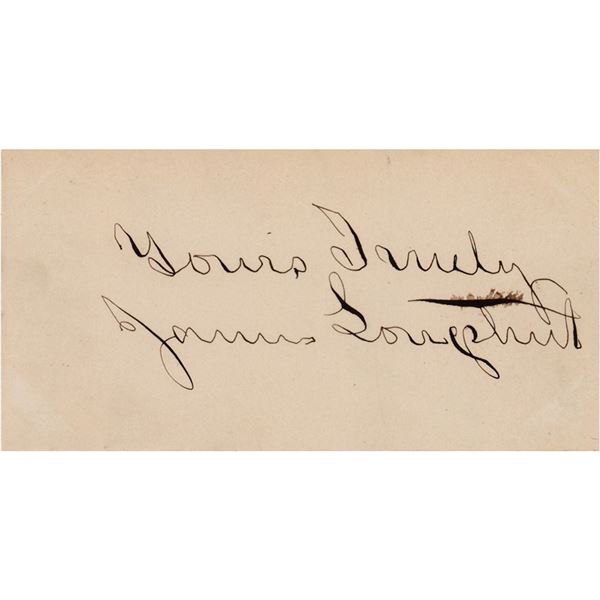 Yours Truely
James Longstreet